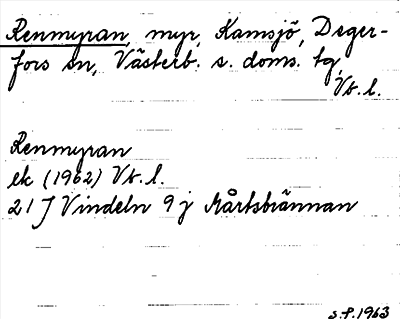 Renmyran, myr, Kamsjö, Deger-
fors sn, Västerb. s. doms. tg,
Vb. l.
Renmyran
ek (1962) Vb. l.
21 J Vindeln 9 j Mårtsbrännan
s.f. 1963